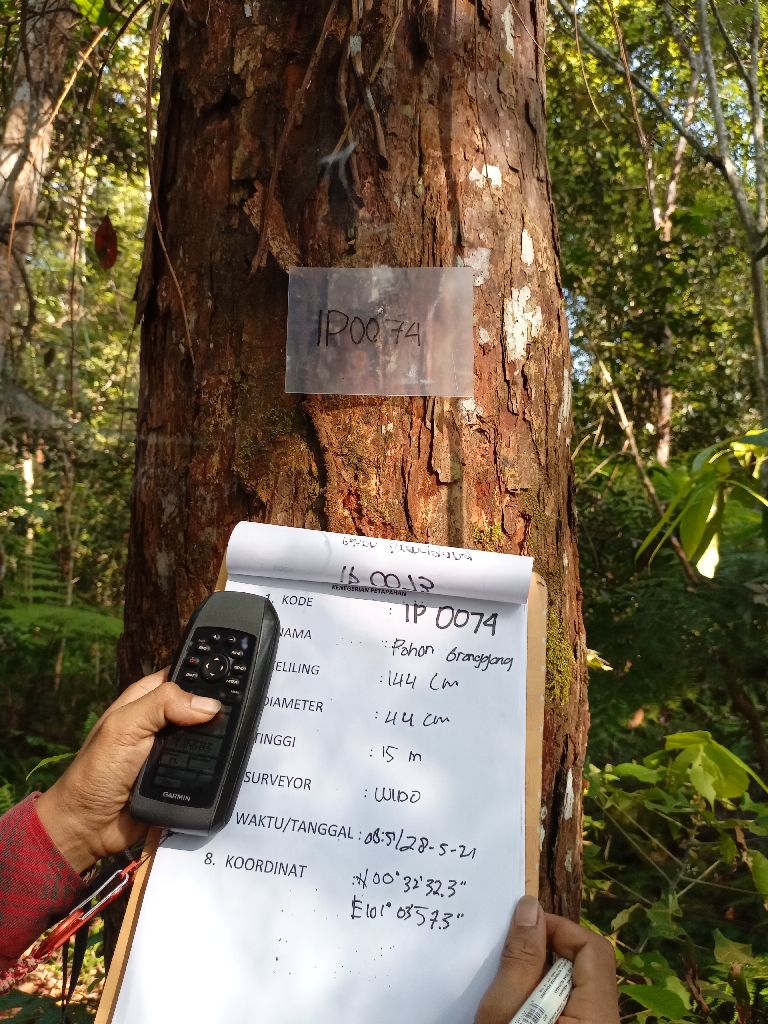 IP0074
IP 0013
KENEGERIAN PETAPAHAN
1. KODE : IP 0074
NAMA : Pohon Grangggang
KELILING : 144 Cm
DIAMETER : 44 cm
TINGGI : 15 m
SURVEYOR : WIDO
WAKTU/TANGGAL : 08:51/28-5-21
8. KOORDINAT : N 00° 32'32.3"
E101° 03'57.3"
GARMIN